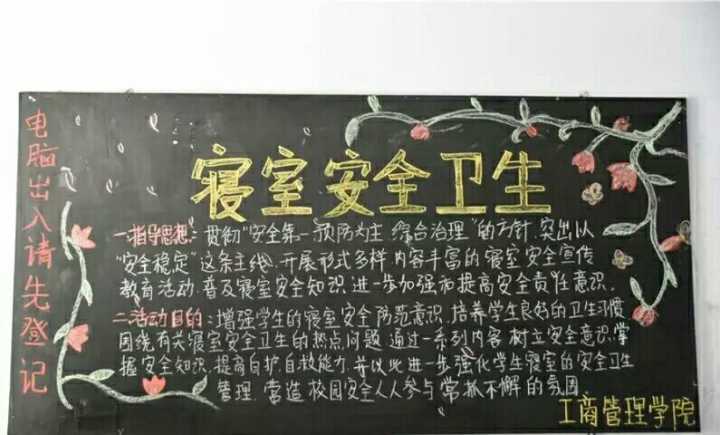 寝室安全卫生
电脑出入请先登记
一.指导思想：贯彻“安全第一 预防为主 综合治理”的方针，突出以
“安全稳定”这条主线，开展形式多样 内容丰富的寝室安全宣传
教育活动，普及寝室安全知识，进一步加强和提高安全责任意识。
二.活动目的：增强学生的寝室安全防范意识，培养学生良好的卫生习惯
围绕有关寝室安全卫生的热点问题，通过一系列内容，树立安全意识，掌
握安全知识，提高自护，自救能力，并以此进一步强化学生寝室的安全卫生
管理，营造校园安全人人参与 常抓不懈的氛围。
工商管理学院